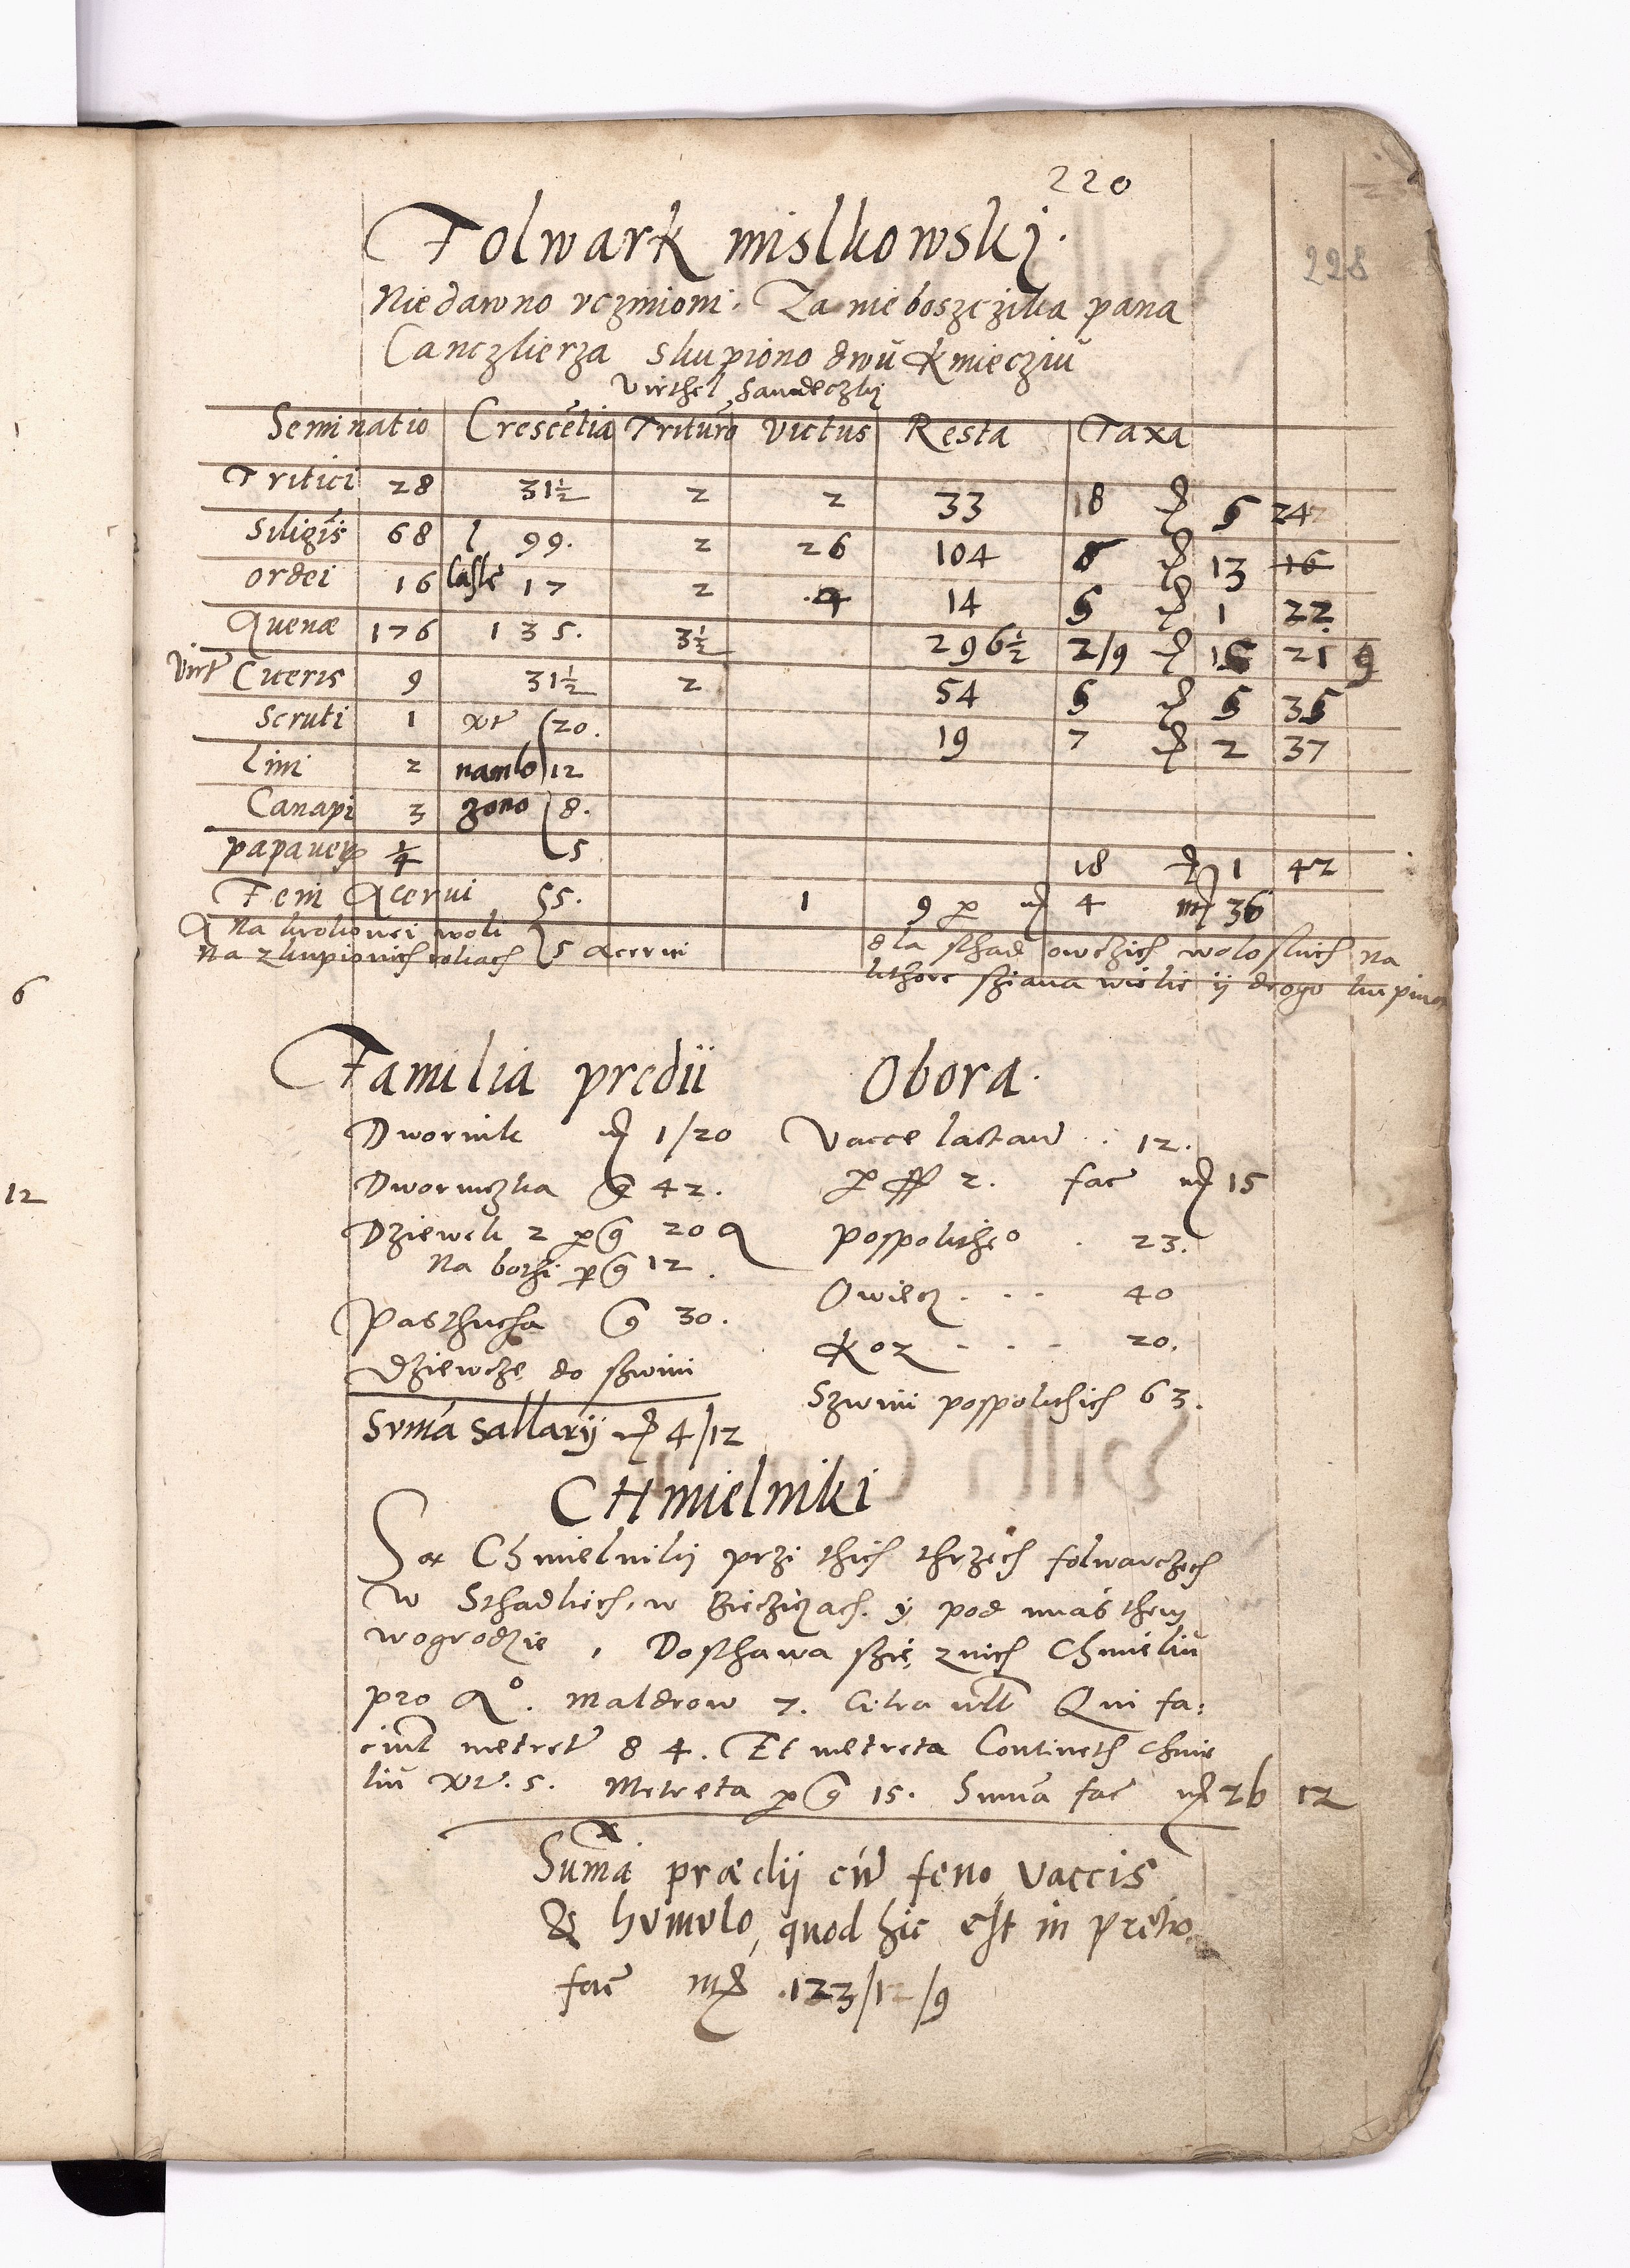 220
228
Folwark mislkowskj.
Niedawno vczinioni. Za nieboszczika pana
Canczlierza skupiono dwu kmiecziu
Virthel Sandeczkij
Seminatio Crescetia Trituro Victus Resta Taxa
Tritici 28 31½ 2 2 33 18 5 24
Siligis 68 99. 2 26 104 8 13 16
Ordei 16 17 2 4 14 5 1 22
Auenæ 176 135. 3½ 296½ 2/9 16 21 9
Virt Ciceris 9 31½ 2 54 5 5 35
Scruti 1 xr 20. 19 7 2 37
Lini 2 namlo 12
Canapi 3 zono 8.
papauer ¼ 5 18 1 42
Feni Acerui 55. 1 9 p 4 36
Na krolionei woli
Na zkupionich roliach 5 acerui
dla sthad owczich woloskich na
kthore sziana wielie ij drogo kupiuo
Familia predii
Dwornik 1/20
Dworniczka 42.
Dziewek 2 20
Na bothi 12
Pasthucha 30.
Dziewcze do szwini
Suma Sallarij 4/12
Obora.
Vacce lactan 12.
2. fac 15
Pospolithego 23.
Owiecz 40
Koz 20.
Szwini pospolithich 63.
CHmielniki
Sa Chmielnikij przi thich thrzech folwarczech
w Sthadliech, w Bieczizach. y pod mias them
wogrodzie, Dosthawa szie znich Chmieliu
pro Ao. Maldrow 7. Citra ult Qui fa:
ciut metret 84. Et metreta Contineth chmie
liu xr. 5. Metreta p 15. Suma fac 26 12
Suma prædij cu feno, vaccis
& humulo, quod hic est in pretio,
fac 123/12/9
6
12